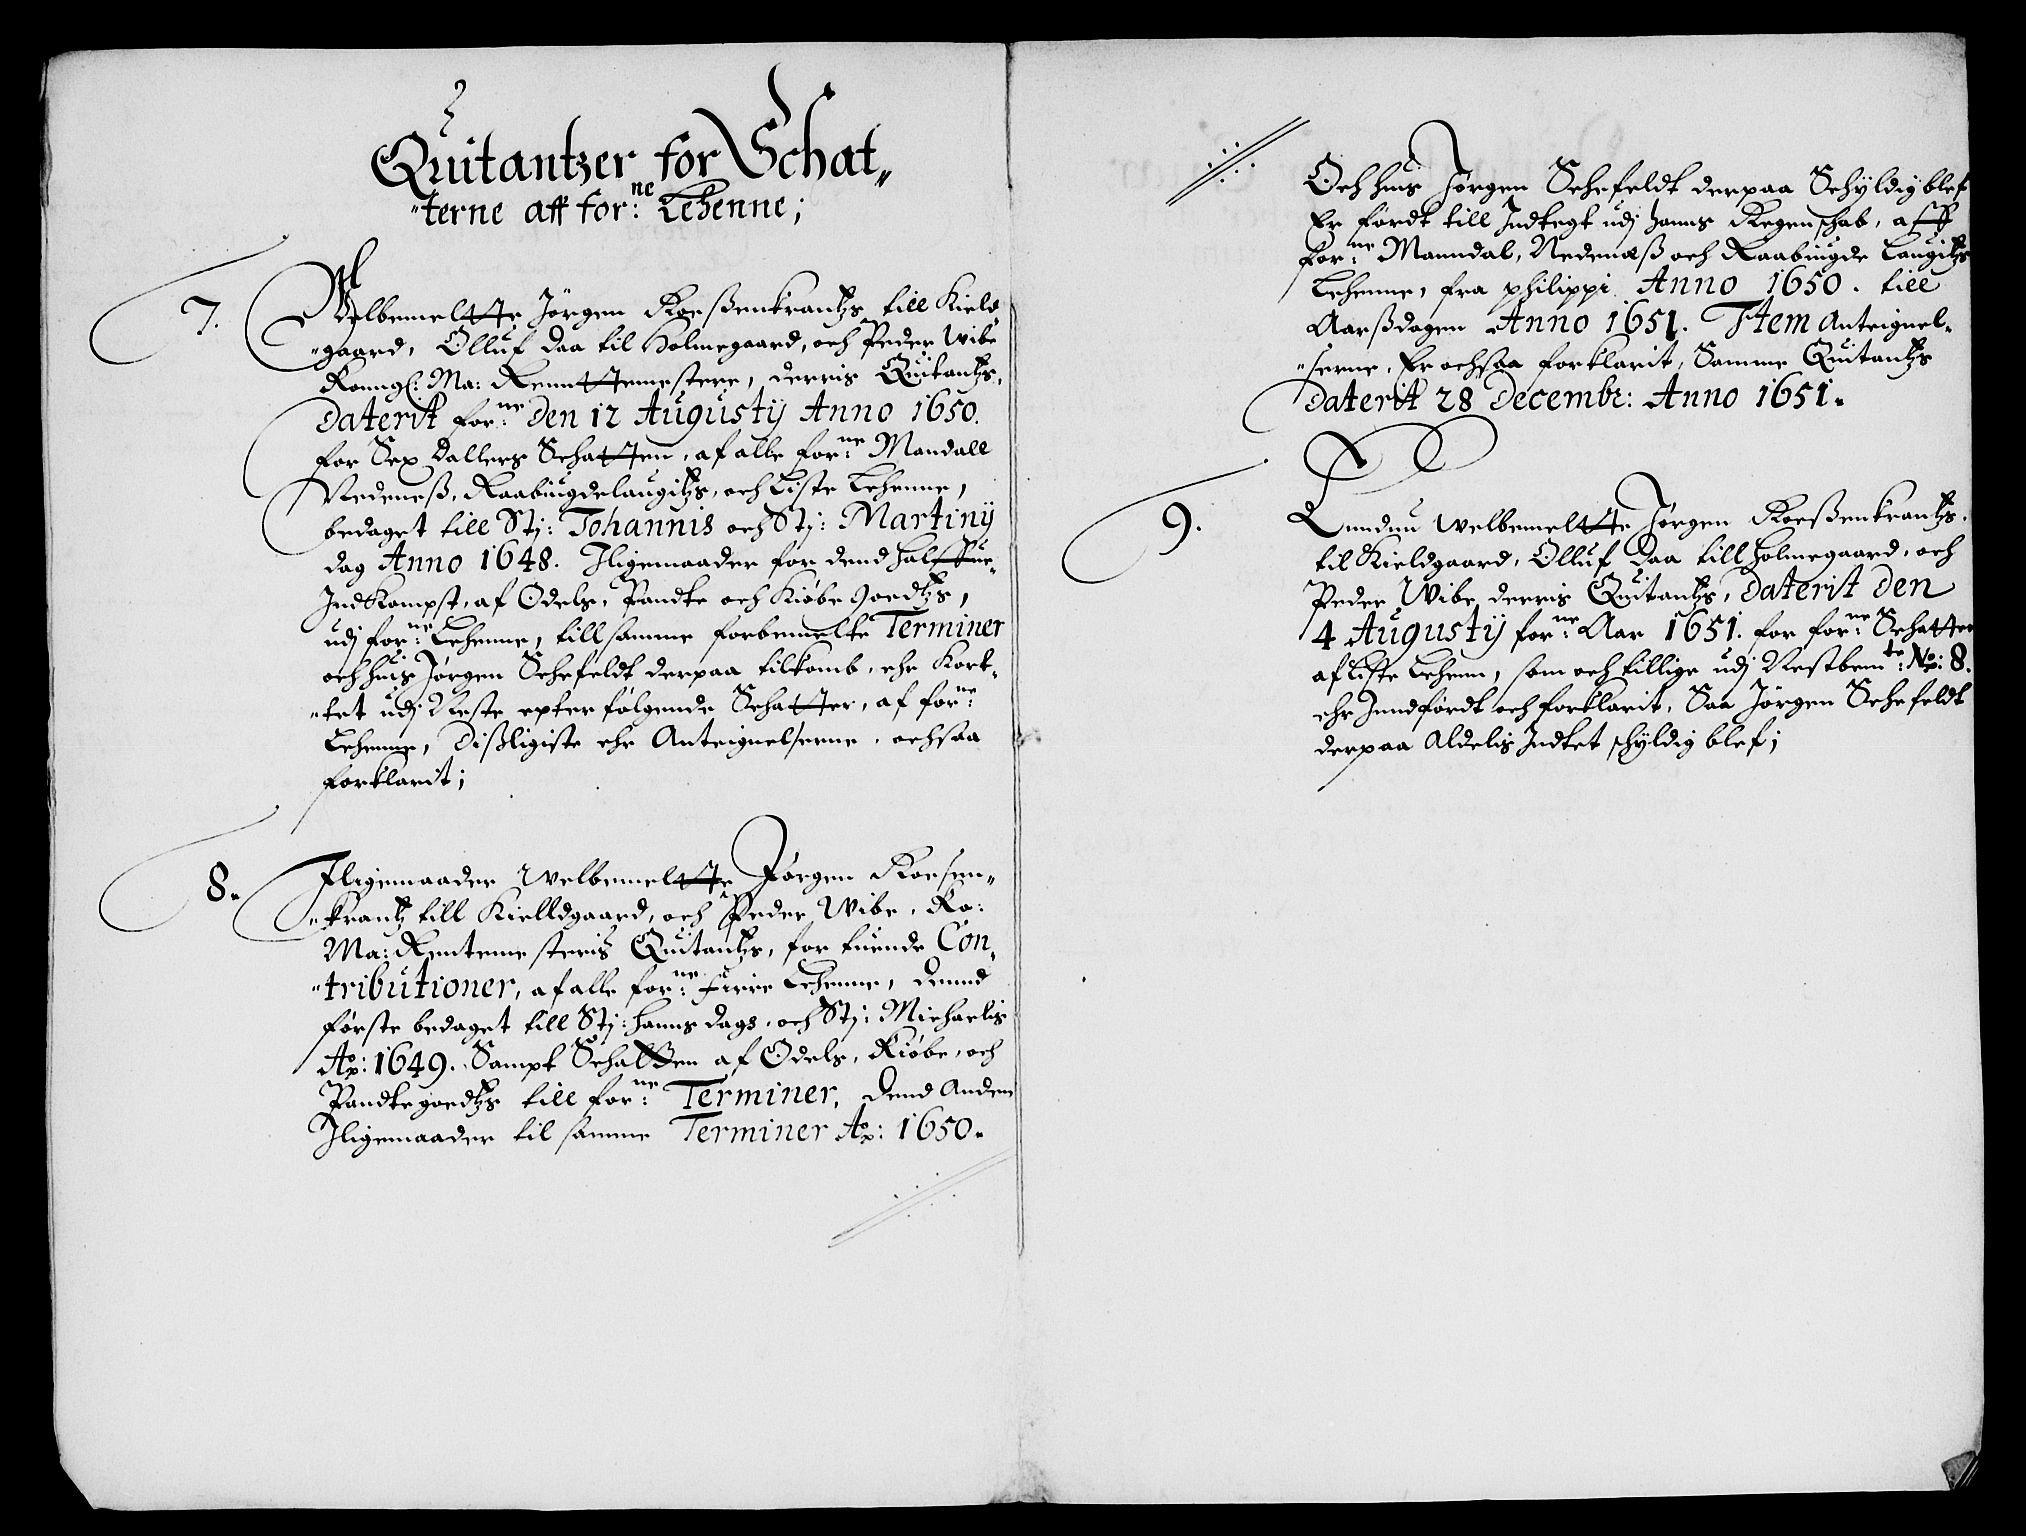 Quitantzer for Schat„
„terne aff for:ne Lehenne;
7.
Welbemeltte Jørgen Roeßenkrantzs till Kield„
„gaard, Olluf Daa til Holmegaard, och Peder Wibe
Konngl: Ma: Renntemestere, derris Quitantzs,
Daterit for:ne den 12 Augustij Anno 1650.
for Sex Dallers Schatten, af alle for:ne Mandall
Nedeneß, Raabiugdelaugitzs, och Liste Lehenne,
bedaget till Stj: Johannis och Stj: Martinij
dag Anno 1648. Jligemaader for dend halffue„
Jndkompst, af Odels, Pandte och Kiøbe Goedtzs,
udj for:ne Lehenne, till samme forbemelte Terminer
och huis Jørgen Schefeldt derpaa tilkomb, ehr Kort„
„tet udj Neste epterfølgende Schatter, af for:ne
Lehenne, Dißligiste ehr Anteignelserne, ochsaa
forklarit;
8.
Jligemaader Welbemeltte Jørgen Roesen„
„krantz till Kielldgaard, och Peder Wibe, Ko:
Ma: Rentemesteris Quitantzs, for tuende Con„
„tributioner, af alle for:ne Firre Lehenne, Dennd
første bedaget till Stj: Hanns dags, och Stj: Michaelis
Ao: 1649. Sampt Schatten af Odels, Kiøbe, och
Pandtegoedtzs till for:ne Terminer, Dend Anden
Jligemaader til samme Terminer Ao: 1650.
Och huis Jørgen Schefeldt derpaa Schyldig blef
Er førdt till Jndtegt udj hanns Regenschab, aff
for:ne Manndal, Nedenæß och Raabiugde Laugitzs
Lehenne, fra philippi Anno 1650. till
Aarßdagen Anno 1651. Jtem Anteignel„
„serne, Er ochsaa forklarit, Samme Quitantzs
Daterit 28 Decembr: Anno 1651.
9.
Enndnu Welbemeltte Jørgen Roeßenkrantzs
til Kieldgaard, Olluf Daa till Holmegaard, och
Peder Wibe derris Quitantzs, Daterit Den
4 Augustij for:ne Aar 1651. for for:ne Schatter
af Liste Lehenn, som och tillige udj Nestbem:te No: 8.
ehr Jnndførdt och forklarit, Saa Jørgen Schefeldt
derpaa Aldelis Jndtet schyldig blef;